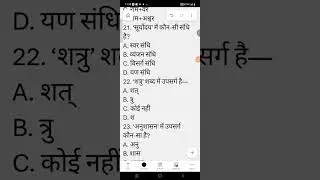 D. यण संधि
22. ‘शत्रु’ शब्द
A. शत्
B. त्रु
C. कोई नहीं
21. ‘सूर्योदय’ में कौन-सी संधि
है?
A. स्वर संधि
B. व्यंजन संधि
C. विसर्ग संधि
D. यण संधि
22. ‘शत्रु’ शब्द में उपसर्ग है—
A. शत्
B. त्रु
C. कोई नहीं
D. श
23. ‘अनुशासन’ में उपसर्ग
कौन-सा है?
A. अनु
B. शास
संधि
उपसर्ग है—